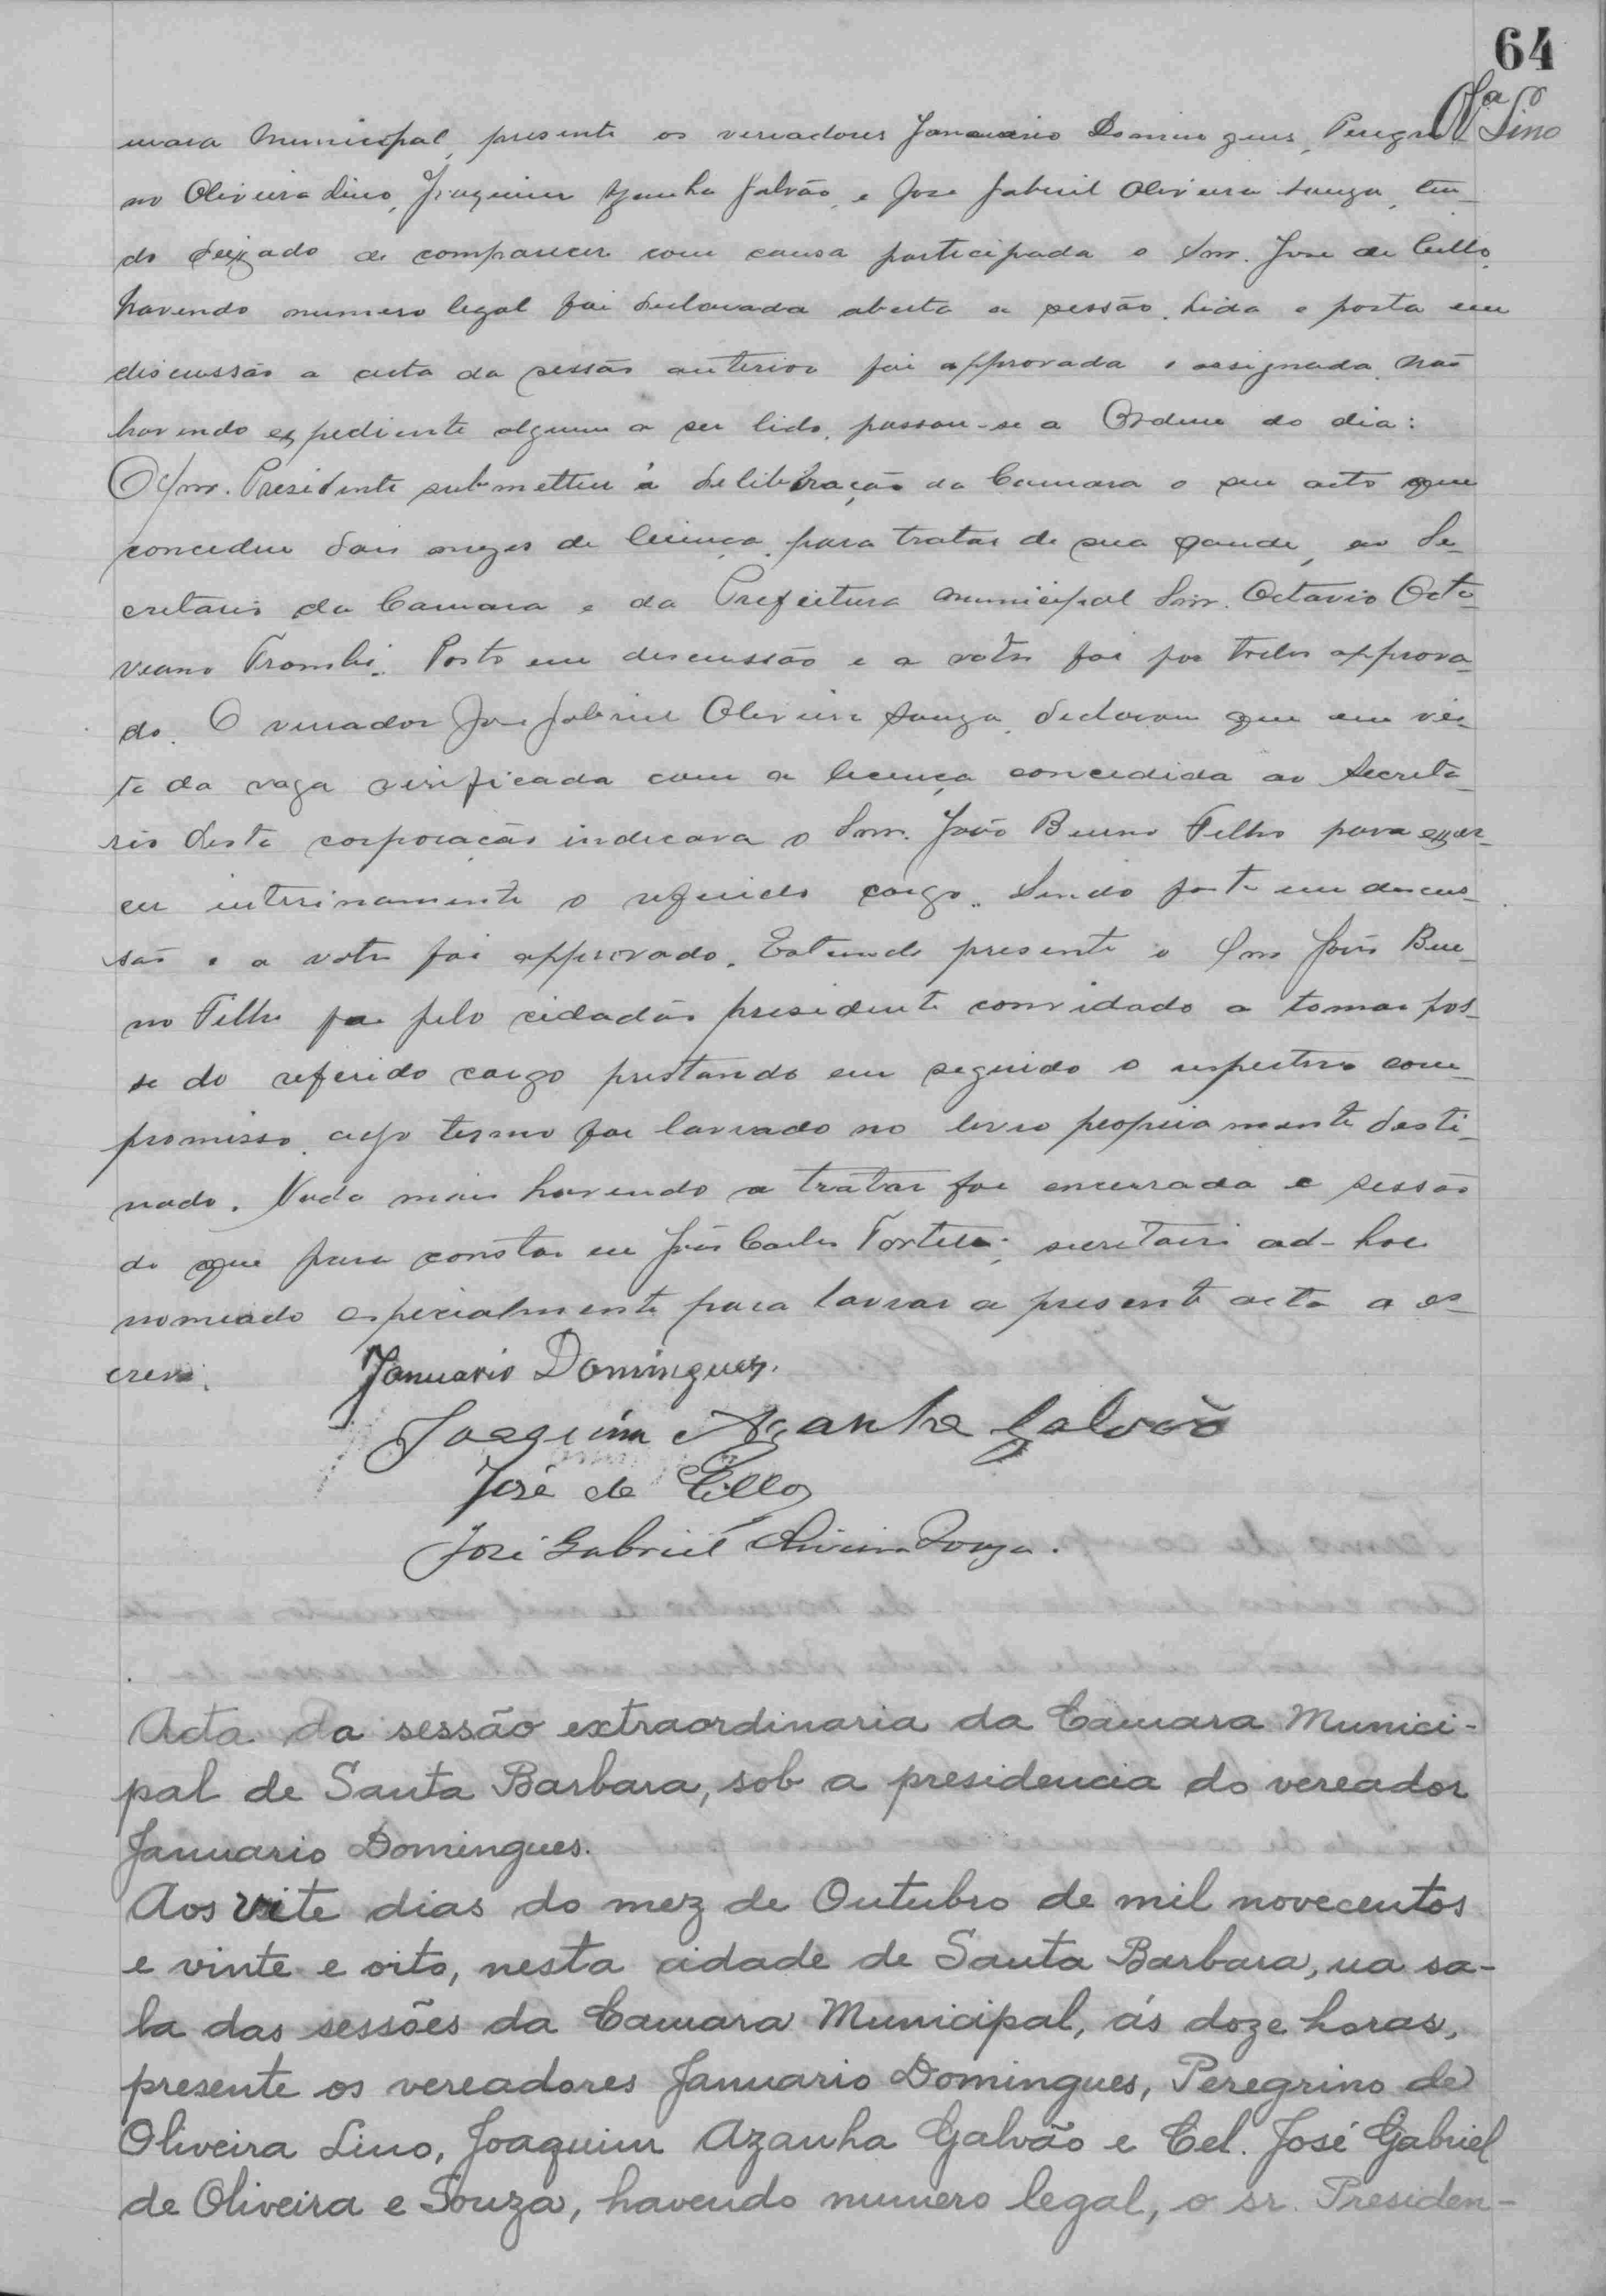 64
Ola Lino
mara Municipal, presente os vereadores Januario Domingues, Peregri
no Oliveira Lino, Joaquim Azanha Galvão, e Jose Gabriel Oliveira Souza, ten-
do deixado de comparecer com causa participada o Snr. Jose de Cillo.
Havendo numero legal foi declarada aberta a sessão. Lida e posta em
discussão a acta da sessão anterior foi approvada e assignada. Não
havendo expediente algum a ser lido, passou-se a Ordem do dia:
O Snr. Presidente submetteu á deliberação da Camara o seu acto que
concedeu dois mezes de licença, para tratar de sua saude, ao Se-
cretario da Camara e da Prefeitura Municipal Snr. Octavio Octa-
viano Trombi. Posto em discussão e a votos foi por todos approva-
do. O vereador Jose Gabriel Oliveira Souza, declarou que em vis-
ta da vaga verificada com a licença concedida ao Secreta-
rio desta corporação indicava o Snr. João Bueno Filho para exer-
cer interinamente o referido cargo. Sendo posto em discus-
são e a votos foi approvado. Estando presente o Snr João Bue-
no Filho foi pelo cidadão presidente convidado a tomar pos-
se do referido cargo prestando em seguida o respectivo com-
promisso, cujo termo foi lavrado no livro propriamente desti-
nado. Nada mais havendo a tratar foi encerrada a sessão
do que para constar eu João Carlos secretario ad-hoc
nomeado especialmente para lavrar a presente acta a es-
crevi.
Januario Domingues.
Joaquim Azanha Galvão
José de Cillo
José Gabriel Oliveira Souza.
Acta da sessão extraordinaria da Camara Munici-
pal de Santa Barbara, sob a presidencia do vereador
Januario Domingues.
Aos vite dias do mez de Outubro de mil novecentos
e vinte e oito, nesta cidade de Santa Barbara, na sa-
la das sessões da Camara Municipal, ás doze horas,
presente os vereadores Januario Domingues, Peregrino de
Oliveira Lino, Joaquim Azanha Galvão e Cel. José Gabriel
de Oliveira e Souza, havendo numero legal, o sr. Presiden-